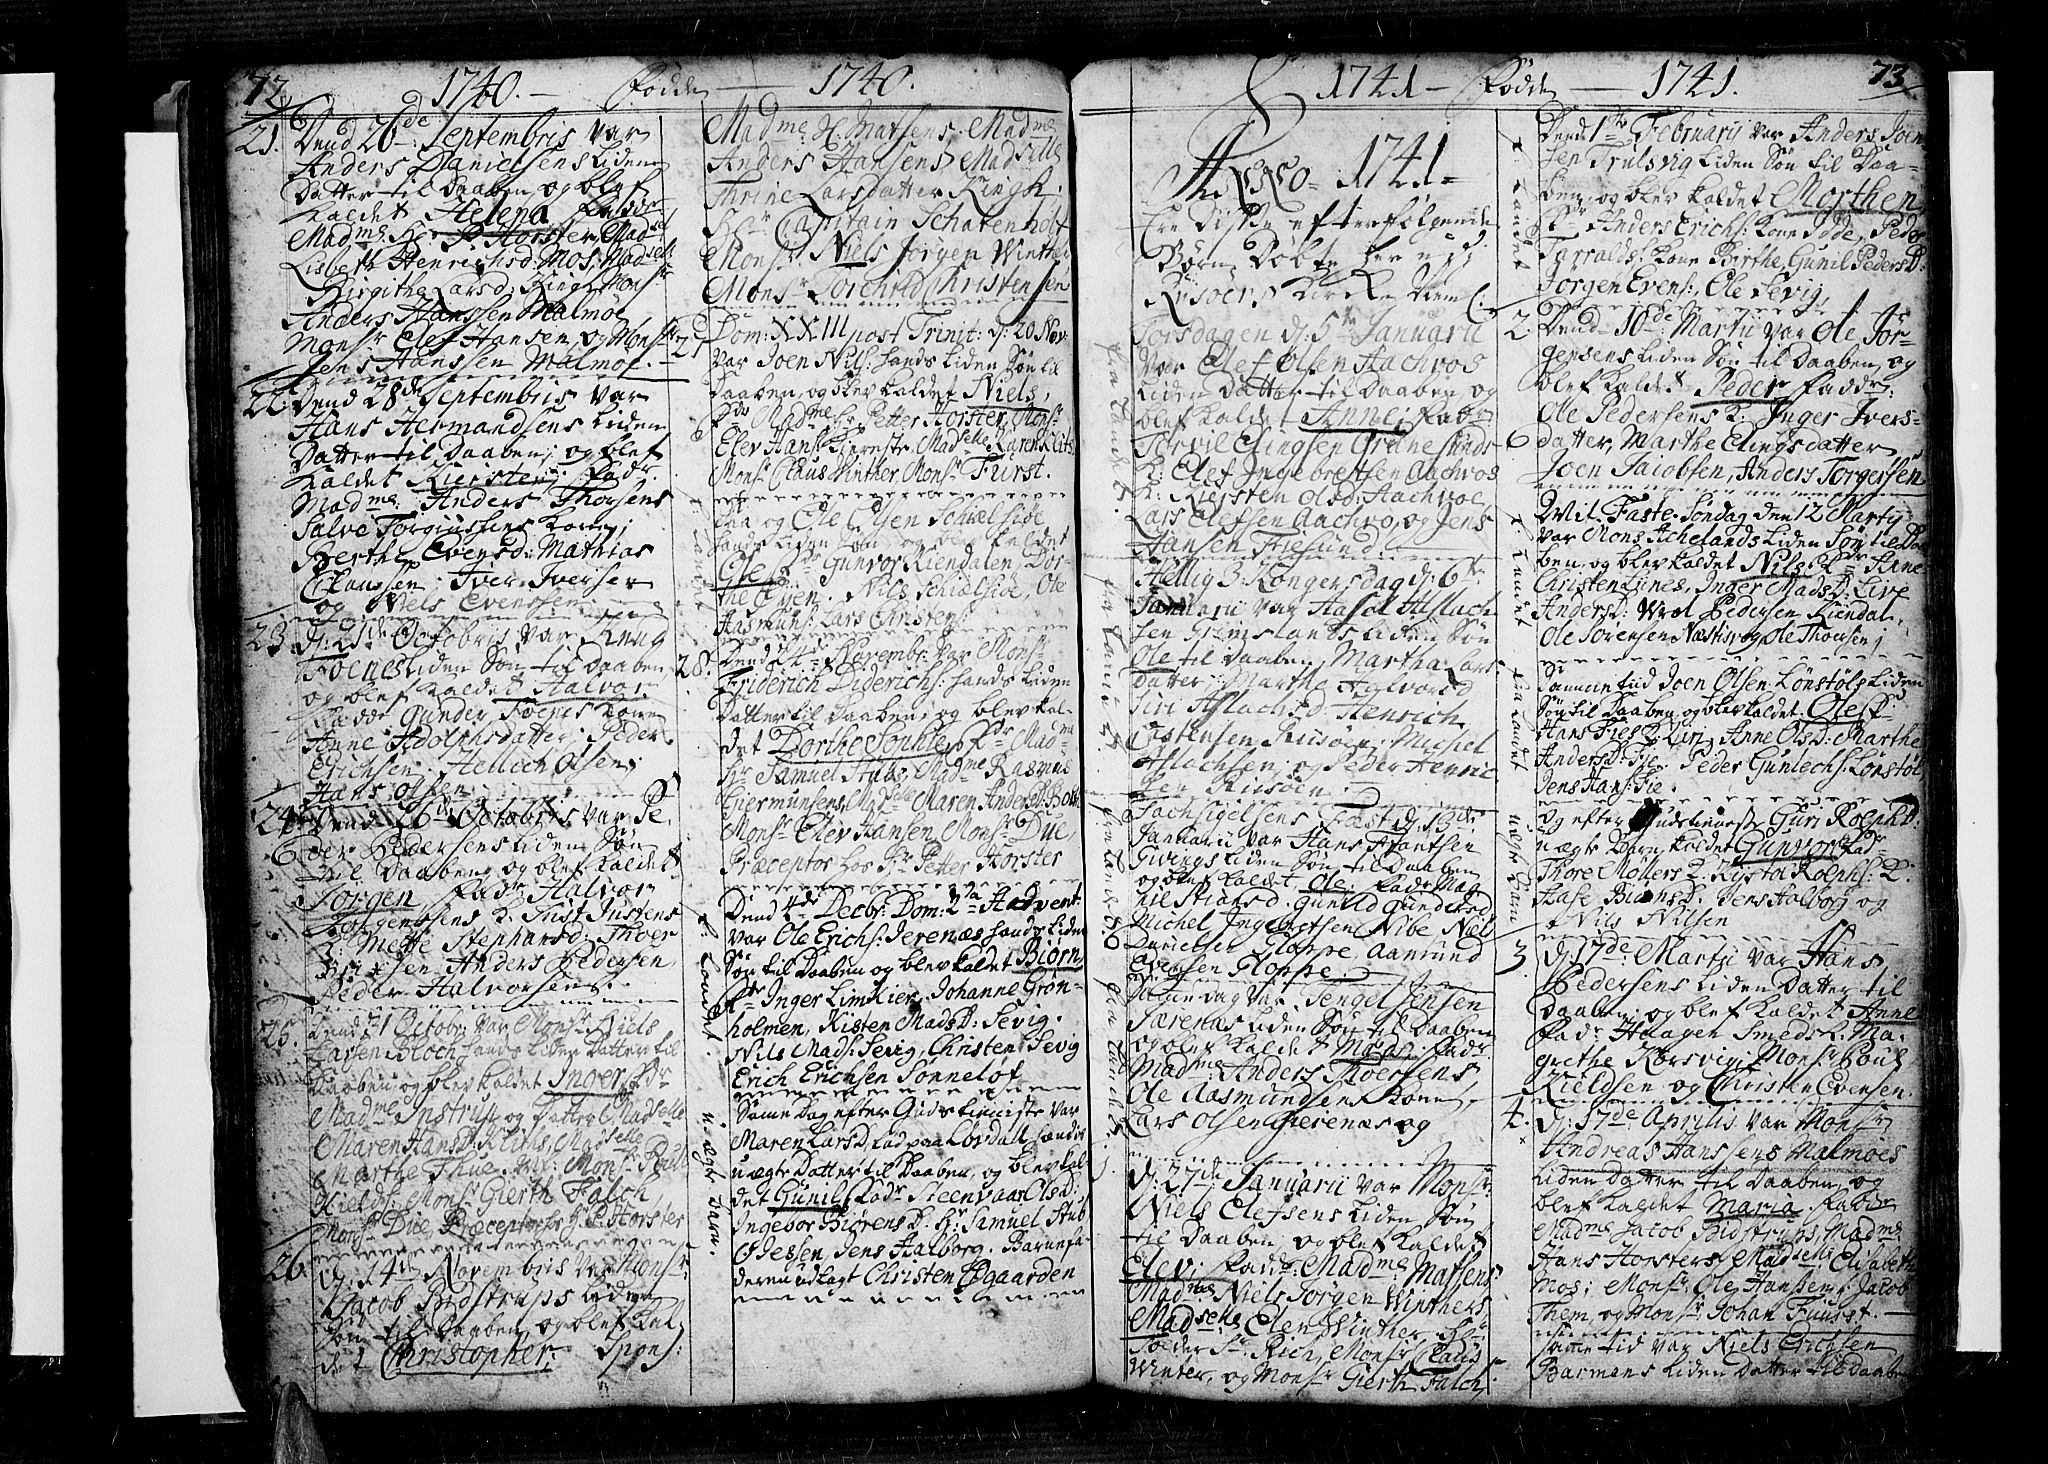 72. 1740. — Fødde 1740.
21. Dend 26de Septembris var
Anders Danielsens liden
Datter til Daaben, og blef
kaldet Helena Fadde
Madme Hr P. Horster, Mad
Lisbeth Henrichsd: Mos, Madsel:
Birgithe Larsd: Ring, Monsr
Anders Hanssen Malmøe
Monsr Elef Hansen, og Monsr
Jens Hanssen Malmøe. —
22. Dend 28de Septembris var
Hans Hermandsens liden
Datter til Daaben, og blef
kaldet Kiersten, Fadr
Madme Anders Thorsens
Salve Torgiussens kone,
Berthe Evensd: Mathias
Claussen, Iver Iversen
og Niels Evenssen
23. d: 21de Octobris var Knug
Foenes liden Søn til Daaben,
og blef kaldet Halvor
Fadde Gunder Foenes kone
Anne Adolphsdatter, Peder
Erichsen, Hellech Olsen,
Hans Olsen
24. Dend 26de Octobris var Pe-
der Pedersens liden Søn
til Daaben, og blef kaldet
Jørgen, Fadr Halvor
Torgerssens K. Just Justens
K. Mette Stephansd: Thoer
Anders Pedersen
Peder Halvorsen.
25. Dend 31 Octobr: var Monsr Niels
Larsen Bloch hands liden Datter til
Daaben, og blev kaldet Inger, Fdr
Madme Instrup og Datter Madselle
Maren Hansd: Klitts, Madselle
Marthe Thue, Monsr Poul
Kields: Monsr Gierth Falch,
Monsr Due, Præceptor hos Hr P. Horster
26. d: 14de Novembris var Monsr
Jacob Bidstrups liden
Søn til Daaben, og blef kal-
det Christopher, Spons:
Madme H. Matsens, Madme
Anders Hansens, Madselle
Thrine Larsdatter Ringh.
Hr Capitain Schatenholt
Monsr Niels Jørgen Winther
Monsr Torchild Christensen
27. Dom: XXIII post Trinit: d: 20 Nov:
var Joen Nils: hands liden Søn til
Daaben, og blev kaldet Niels,
Fdr Madme Hr Petter Horster, Monsr
Elev Hans: Kiereste, Madselle Karen Klits
Monsr Claus Winther, Monsr Furst.
og Ole Olsen Schielsøe
hands liden Søn og blev kaldet
Ole Fdr Gunvor Riendalen, Dor-
the Øyen. Nils Schielsøe, Ole
Aasmuns: Lars Christens:
28. Dend 24de Novembr: var Monsr
Friderich Diderichs: hands liden
Datter til Daaben, og blev kal-
det Dorthe Sophie, Fdr Madme
Hr Samuel Stubs, Madme Rasmus
Giermunsens, Madselle Maren Andersd: Bolt
Monsr Elev Hansen, Monsr Due
Præceptor hos Hr Petter Horster
Dend 4de Decbr: Dom: 2da Advent
var Ole Erichs: Jerenæs hands liden
Søn til Daaben og blev kaldet Biørn
Fdr Inger Limkier, Johanne Grøn-
holmen, Kisten Madsd: Sevig.
Nils Mads: Sevig, Christen Sevig
Erich Erichsen Sønneløf
Same Dag efter Guds tieniste var
Maren Larsd, Lad paa Løvdall hendis
uægte Datter til Daaben, og blev kal-
det Gunil, Fadr Steenvaar Olsd:
Ingebor Biørens D. Hr Samuel Stub
C: Jessen, Jens Aalborg. Barnefa-
deren udlagt Christen Øgaarden
1741 — Fødde — 1741. 73
Anno 1741
Ere diske efterfølgende
Børn Døbte her udi
Riisøers Kircke Nemlig:
Torsdagen d: 5te Januarii
Var Elef Olsen Aachvos
liden Datter til Daaben, og
blef kaldet Anne, Fadr
Torvil Elingsen
K. Elef Ingebretsen Aachvos
K. Kiersten Olsd: Aachvoe
Lars Elefsen Aachvo, og Jens
Hansen Fiesund.
Hellig 3 Kongersdag d: 6te
Januarii var Aasel Aslach
sen Grimslands liden Søn
Ole til Daaben, Martha Lars
Datter, Martha Halvorsd
Siri Aslachsd Henrich
Ostensen Riisøen, Michel
Aslachsen, og Peder Henric
sen Riisøen.
Sachsigelsens Fæst d: 13de
Januarii var Hans Hantsen
Givings liden Søn til Daaben
og blef kaldet, Ole, Fadr Mag
nil Stiansd: Gunild Gundersd
Michel Ingebretsen Nibe Niel
Danielsen Gloppe Aanund
Evensen Gloppe.
Same dag var Tengel Jensen
Særenæs liden Søn til Daaben
og blef kaldet Mads, Fadr
Madme Anders Thoersens
Ole Aasmundsens kone,
Lars Olsen Gierenæs og
d: 27de Januarii var Monsr:
Niels Elefsens liden Søn
til Daaben, og blef kaldet
Elev, Fadde: Madme: Matsens
Madme: Niels Jørgen Winthers
Madselle Elen Winther,
Monsr Claus
Winter, og Monsr Gierth Falch.
Dend 1te Februarii var Anders Joen
sen Trulsvig liden Søn til Daa-
ben, og blev kaldet Morthen
Fdr Anders Erichs: kone Pede
Tarralds: kone Birthe, Gunil Peders D:
Jørgen Evens:, Ole Sevig,
2. Dend 10de Martii var Ole Jør-
gensens liden Søn til Daaben, og
blef kaldet Peder, Fadde:
Ole Pedersens K: Inger Ivers-
datter, Marthe Elingsdatter
Joen Jacobsen, Anders Torgerssen
Mit Faste-Søndag den 12 Martij
var Mons Achelands liden Søn til Daa-
ben, og blev kaldet Nils Fdr Anne
Christen Lines, Inger Mads D: Live
Anders D: Wræl Pedersen Riendal,
Ole Sørensen Næstvog, Ole Thorsen,
Samme tiid Joen Olsen Lønstøls liden
Søn til Daaben, og blev kaldet Ole Fr
Hans Fies K. Kirj, Anne Ols D: Marthe
Anders D: Fie, Peder Gunlechs: Lønstøl
Jens Hans: Fie.
Og efter Gudstieneste Guri Rolphs D:
uægte Barn, kaldet Gunvor, Fadr
Thore Møllers K. Kysten Rolphs: D:
Aase Biørns D: Jens Aalborg og
Nils Nilsen
3. d: 17de: Martii var Hans
Pedersens liden Datter til
Daaben, og blef kaldet Anne
Fadr Haagen Smeds K. Ma-
grethe Korsvig, Monsr Poul
Kieldsen og Christen Evensen.
4. d: 17de Aprilis var Monsr
Andreas Hanssens Malmøes
liden Datter til Daaben, og
blef kaldet Maria, Fadde
Madme Jacob Bidstrups, Madme
Hans Horsters, Madselle Elisabeth
Mos; Monsr Ole Hansen, Jacob
Them, og Monsr Johan Fuust. —
same tid var Niels Erichsen
Barmens liden Datter til Daaben
fra Landet.
uægte Barn